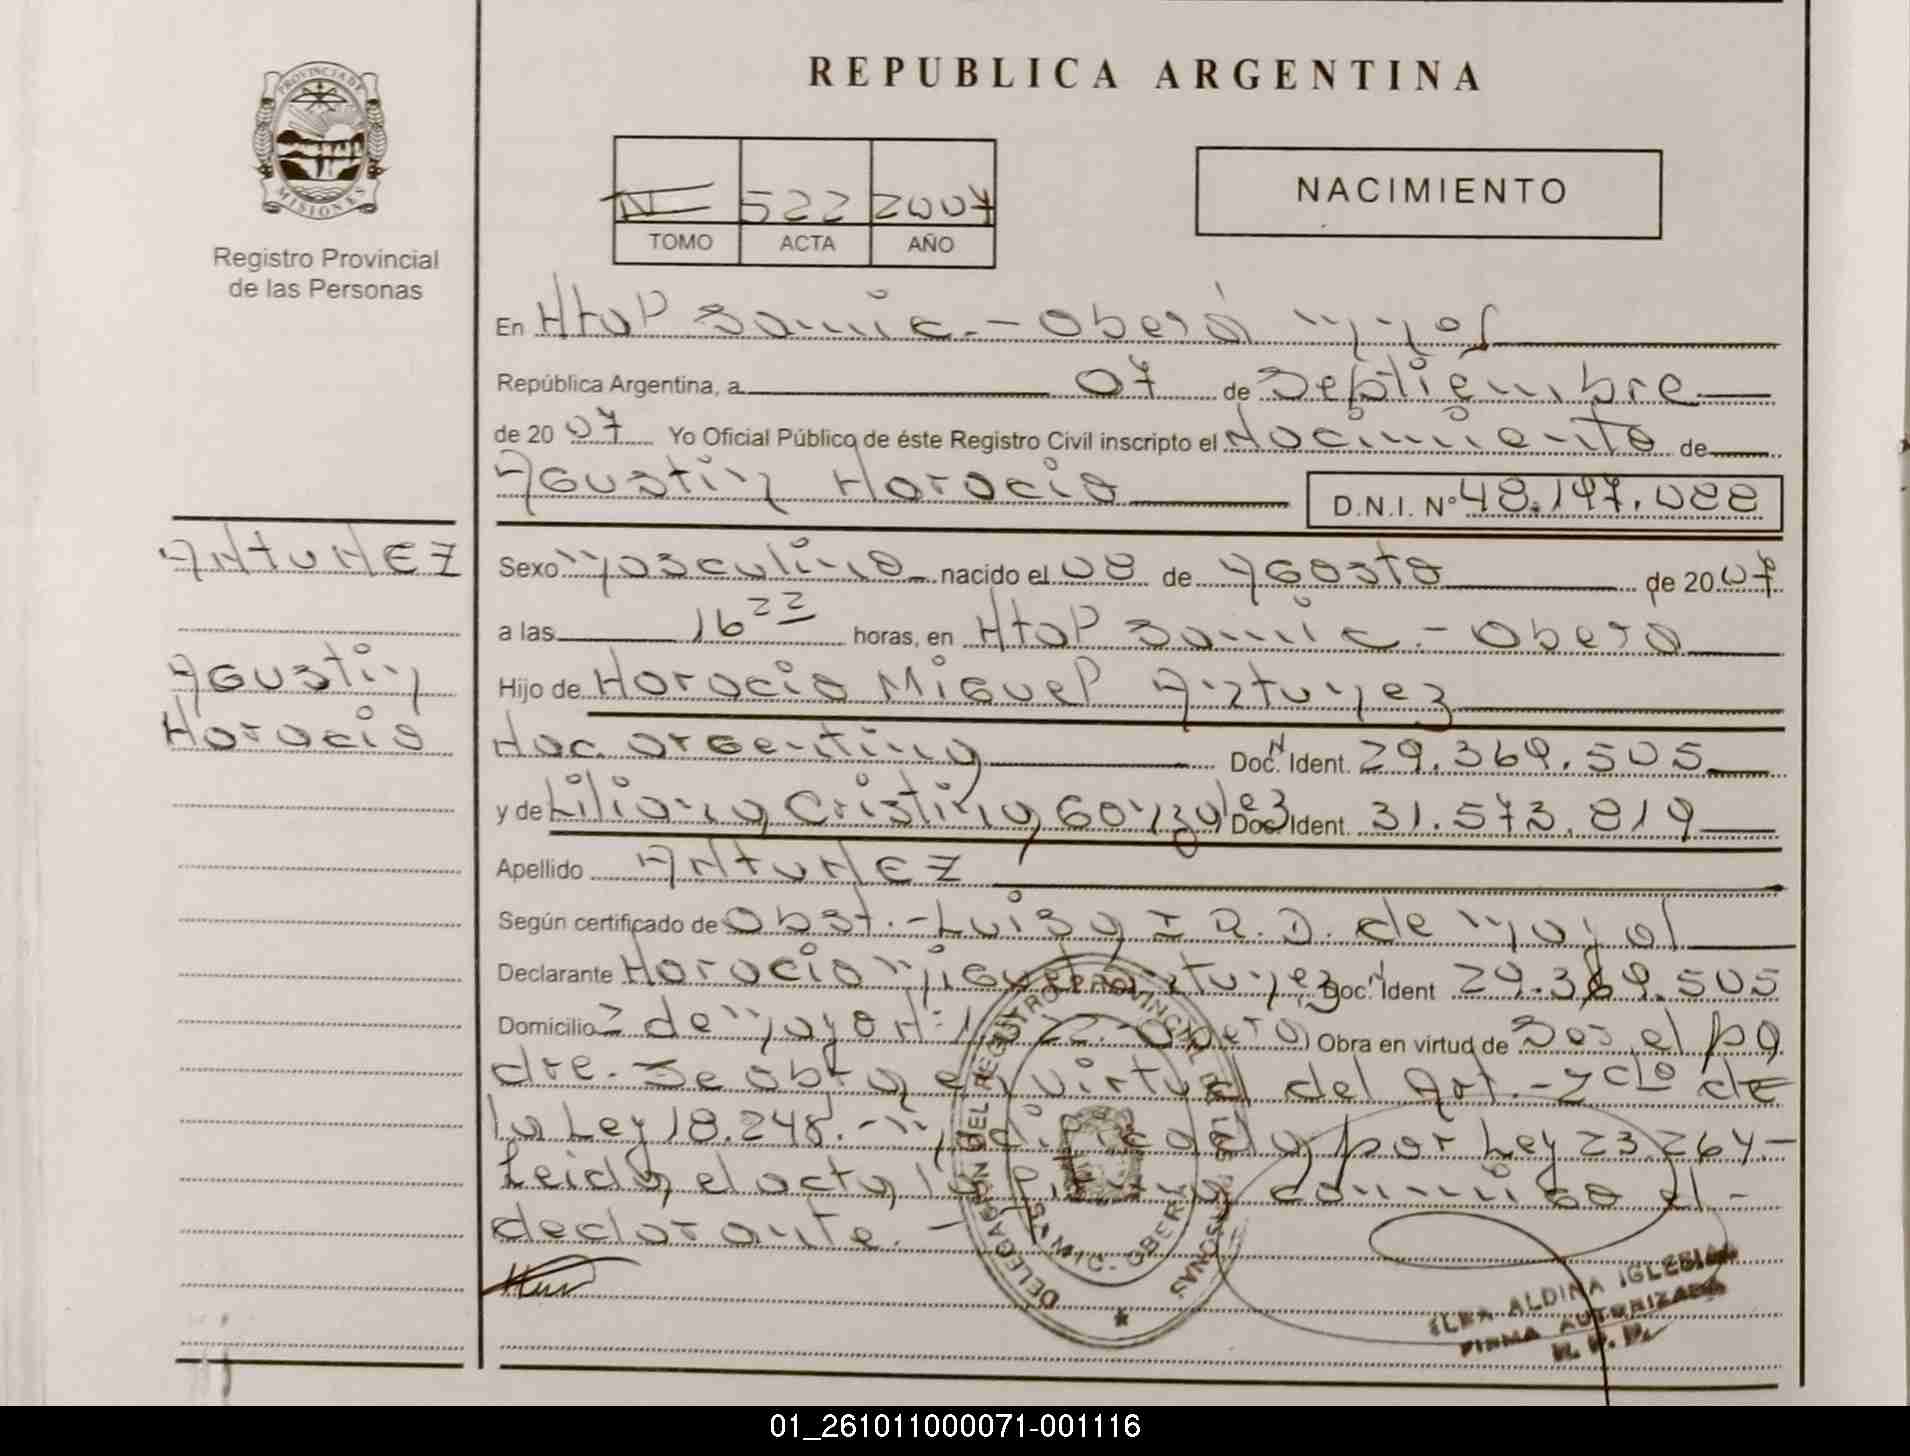 PROVINCIA DE
MISIONES
Registro Provincial
de las Personas
ANTUNEZ
Agustin
Horacio
REPUBLICA ARGENTINA
522 2007
TOMO ACTA AÑO
NACIMIENTO
En Htal Samic.- Oberá
República Argentina, a 07 de Septiembre
de 2007 Yo Oficial Público de éste Registro Civil inscripto el Nacimiento de
Agustin Horacio D.N.I. Nº 48.197.088
Sexo Masculino nacido el 08 de Agosto de 2007
a las 16 22 horas, en Htal Samic.- Oberá
Hijo de Horacio Miguel Antunez
Nac. argentina Doc. N Ident. 29.369.505
y de Liliana Cristina Gonzalez Doc. Ident. 31.573.819
Apellido ANTUNEZ
Según certificado de Obst.- Luisa de
Declarante Horacio Miguel Antunez Doc. N Ident 29.369.505
Domicilio 2 de Mayo Nº Oberá Obra en virtud de Ser el pa
dre. Se obra en virtud del Art.- 2do de
la Ley 18.248.- Modificada por Ley 23.264-
Leida el acta la firma conmigo el -
declarante. -
DELEGACIÓN DEL REGISTRO PROVINCIAL DE LAS PERSONAS
OBERA
ALDINA IGLESIAS
FIRMA AUTORIZADA
R. P. P.
01_261011000071-001116